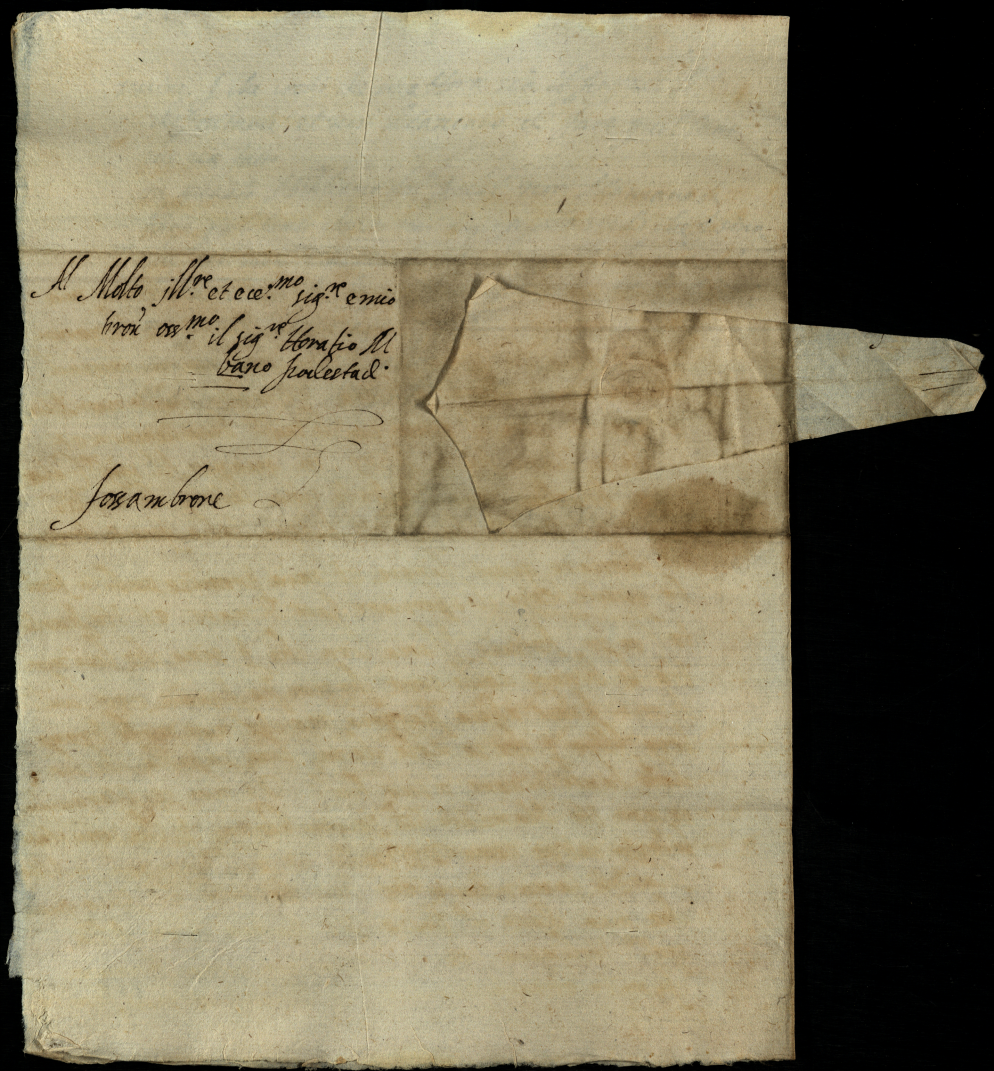 Al Molto ill.re et ecc.mo sig.re e mio
oss.mo il sig.re Horatio Al
bano podestad.
fossambrone